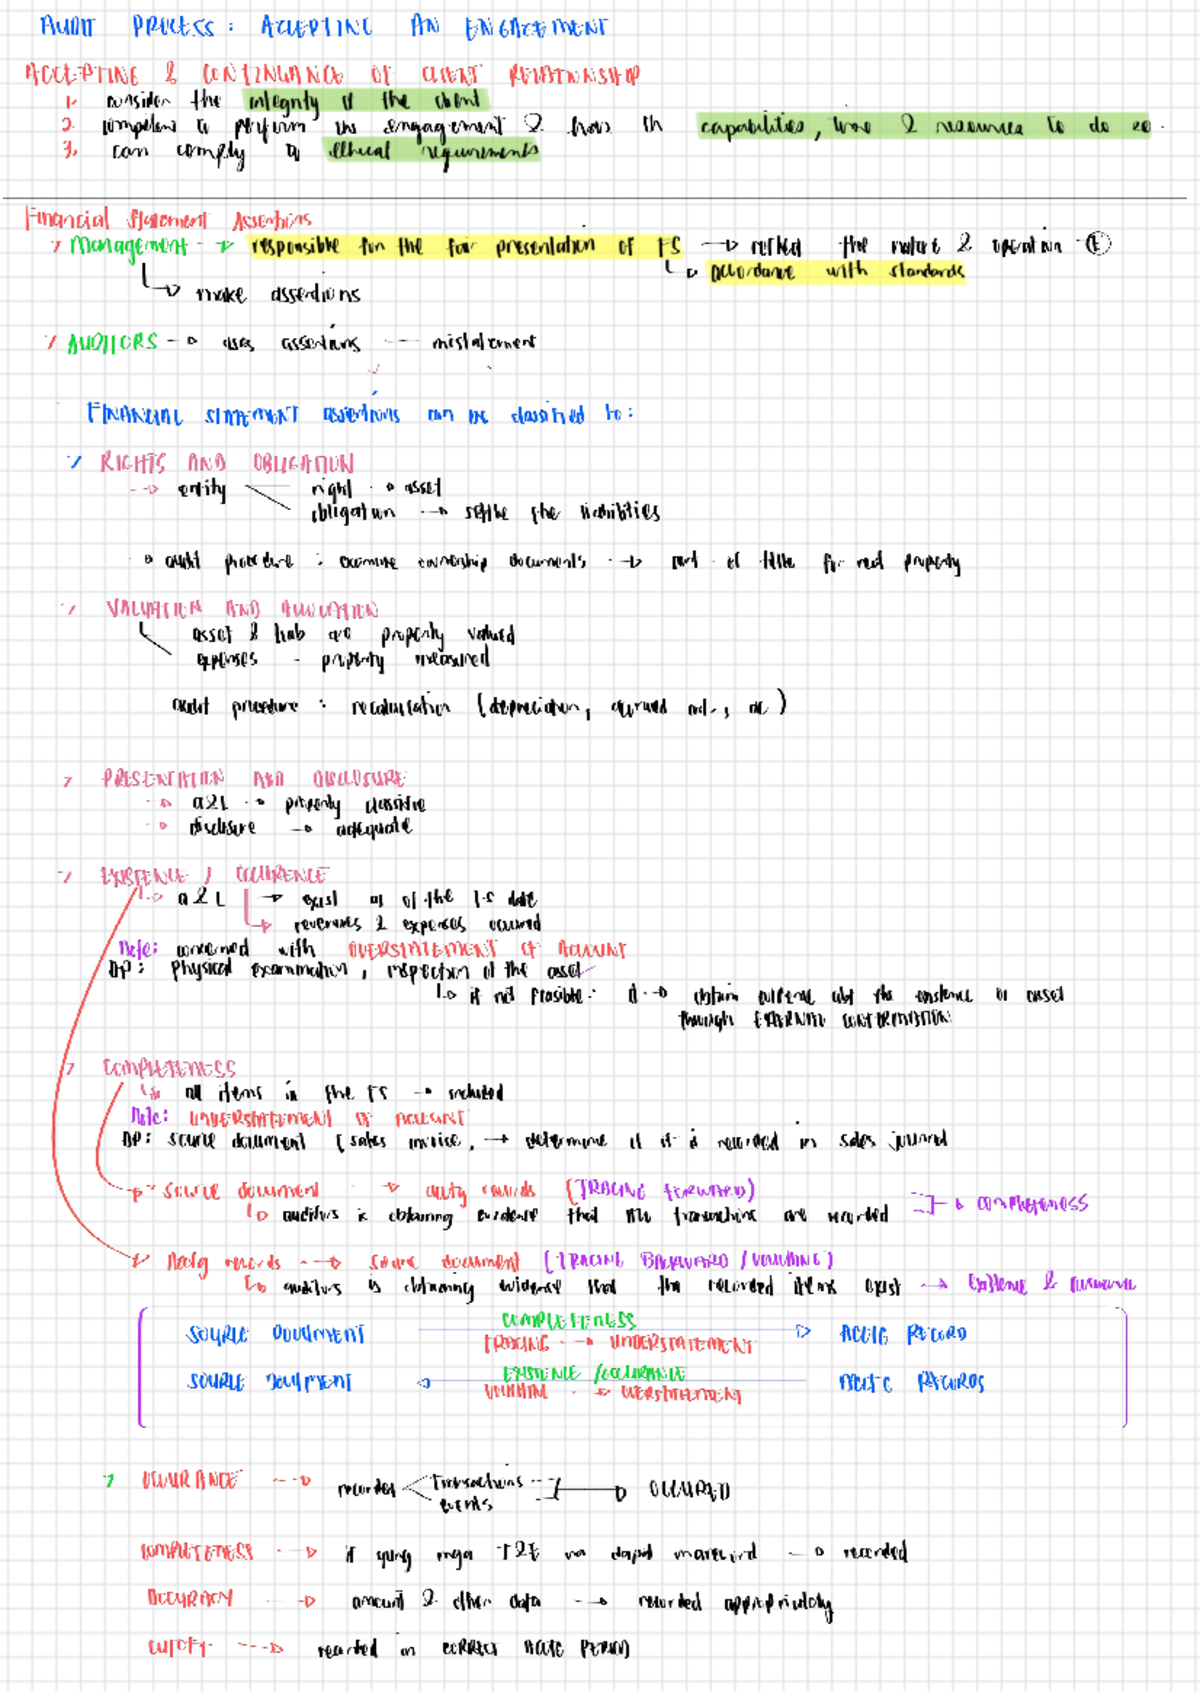 AUDIT PROCESS: ACCEPTING AN ENGAGEMENT
ACCEPTING & CONTINUANCE OF CLIENT RELATIONSHIP
1. consider the integrity of the client
2. competent to perform the engagement & have th capabilities, time & resources to do so.
3. can comply w ethical requirements
Financial Statement Assertions
> Management → responsible for the fair presentation of FS → reflect the nature & operation (E)
↳ accordance with standards
↳ make assertions
> AUDITORS → uses assertions --- mistatement
FINANCIAL STATEMENT assertions can be classified to:
> RIGHTS AND OBLIGATION
→ entity right → asset
obligation → settle the liabilities
audit procedure : examine ownership documents → of title for real property
> VALUATION AND ALLOCATION
asset & liab are properly valued
expenses - properly measured
audit procedure : recalculation (depreciation, accrued
> PRESENTATION AND DISCLOSURE
→ a&L → properly classified
→ disclosure → adequate
> EXISTENCE / OCCURENCE
↳ a&L → exist as of the FS date
→ revenues & expenses occured
Note: concerned with OVERSTATEMENT OF ACCOUNT
AP: physical examination, inspection of the asset
↳ if not feasible: → obtain evidence abt the existence of asset
through EXTERNAL CONFIRMATION
> COMPLETENESS
↳ all items in the FS → included
Note: UNDERSTATEMENT OF ACCOUNT
AP: source document (sales invoice, → determine if it is recorded in sales journal
→ source document → acctg records (TRACING FORWARD)
↳ auditors is obtaining evidence that the transactions are recorded → COMPLETENESS
→ Acctg records → source document (TRACING BACKWARD / VOUCHING)
↳ auditors is obtaining evidence that the recorded items exist → Existence & occurence
SOURCE DOCUMENT COMPLETENESS → ACCTG RECORD
TRACING → UNDERSTATEMENT
SOURCE DOCUMENT ← EXISTENCE / OCCURANCE ACCTG RECORDS
VOUCHING → OVERSTATEMENT
> OCCURANCE → recorded transactions → OCCURED
events
COMPLETENESS → if yung mga T&E na dapat marecord → recorded
ACCURACY → amount & other data → recorded appropriately
CUTOFF → recorded in CORRECT ACCTG PERIOD